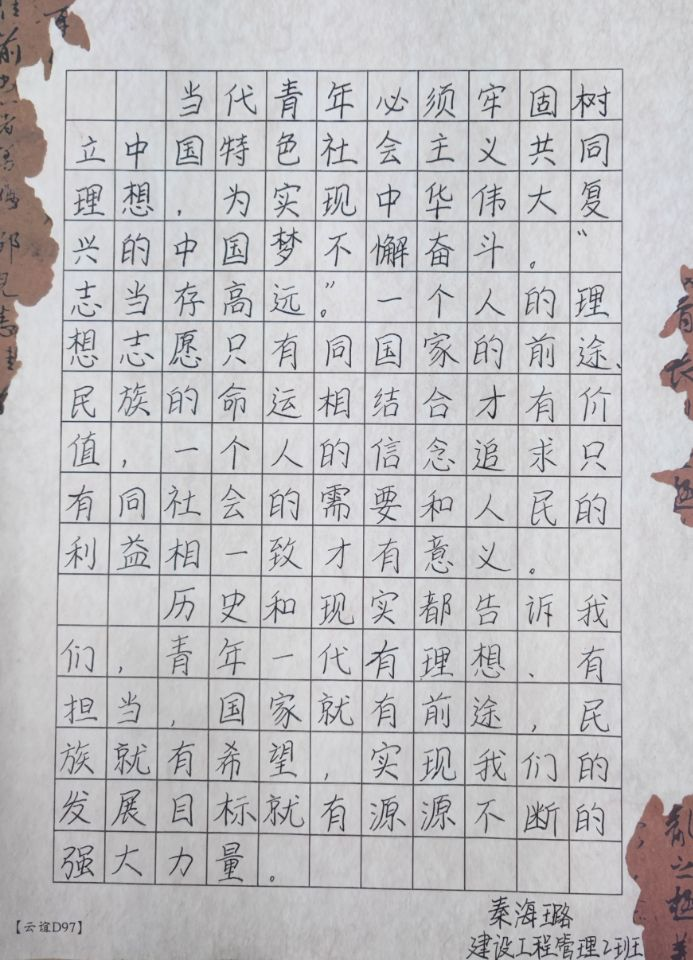 当代青年必须牢固树
立中国特色社会主义共同
理想，为实现中华伟大复
兴的中国梦不懈奋斗。“
志当存高远。”一个人的理
想志愿只有同国家的前途、
民族的命运相结合才有价
值，一个人的信念追求只
有同社会的需要和人民的
利益相一致才有意义。
历史和现实都告诉我
们，青年一代有理想、有
担当，国家就有前途，民
族就有希望，实现我们的
发展目标就有源源不断的
强大力量。
秦海璐
建设工程管理2班
【云谊D97】